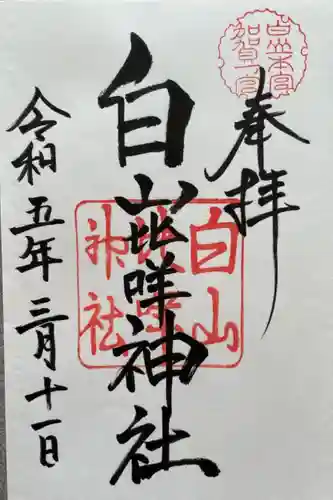 奉拝
白山比咩神社
令和五年三月十一日
白山
比咩
神社